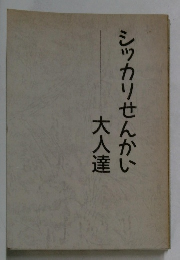 シッカリせんかい
大人達